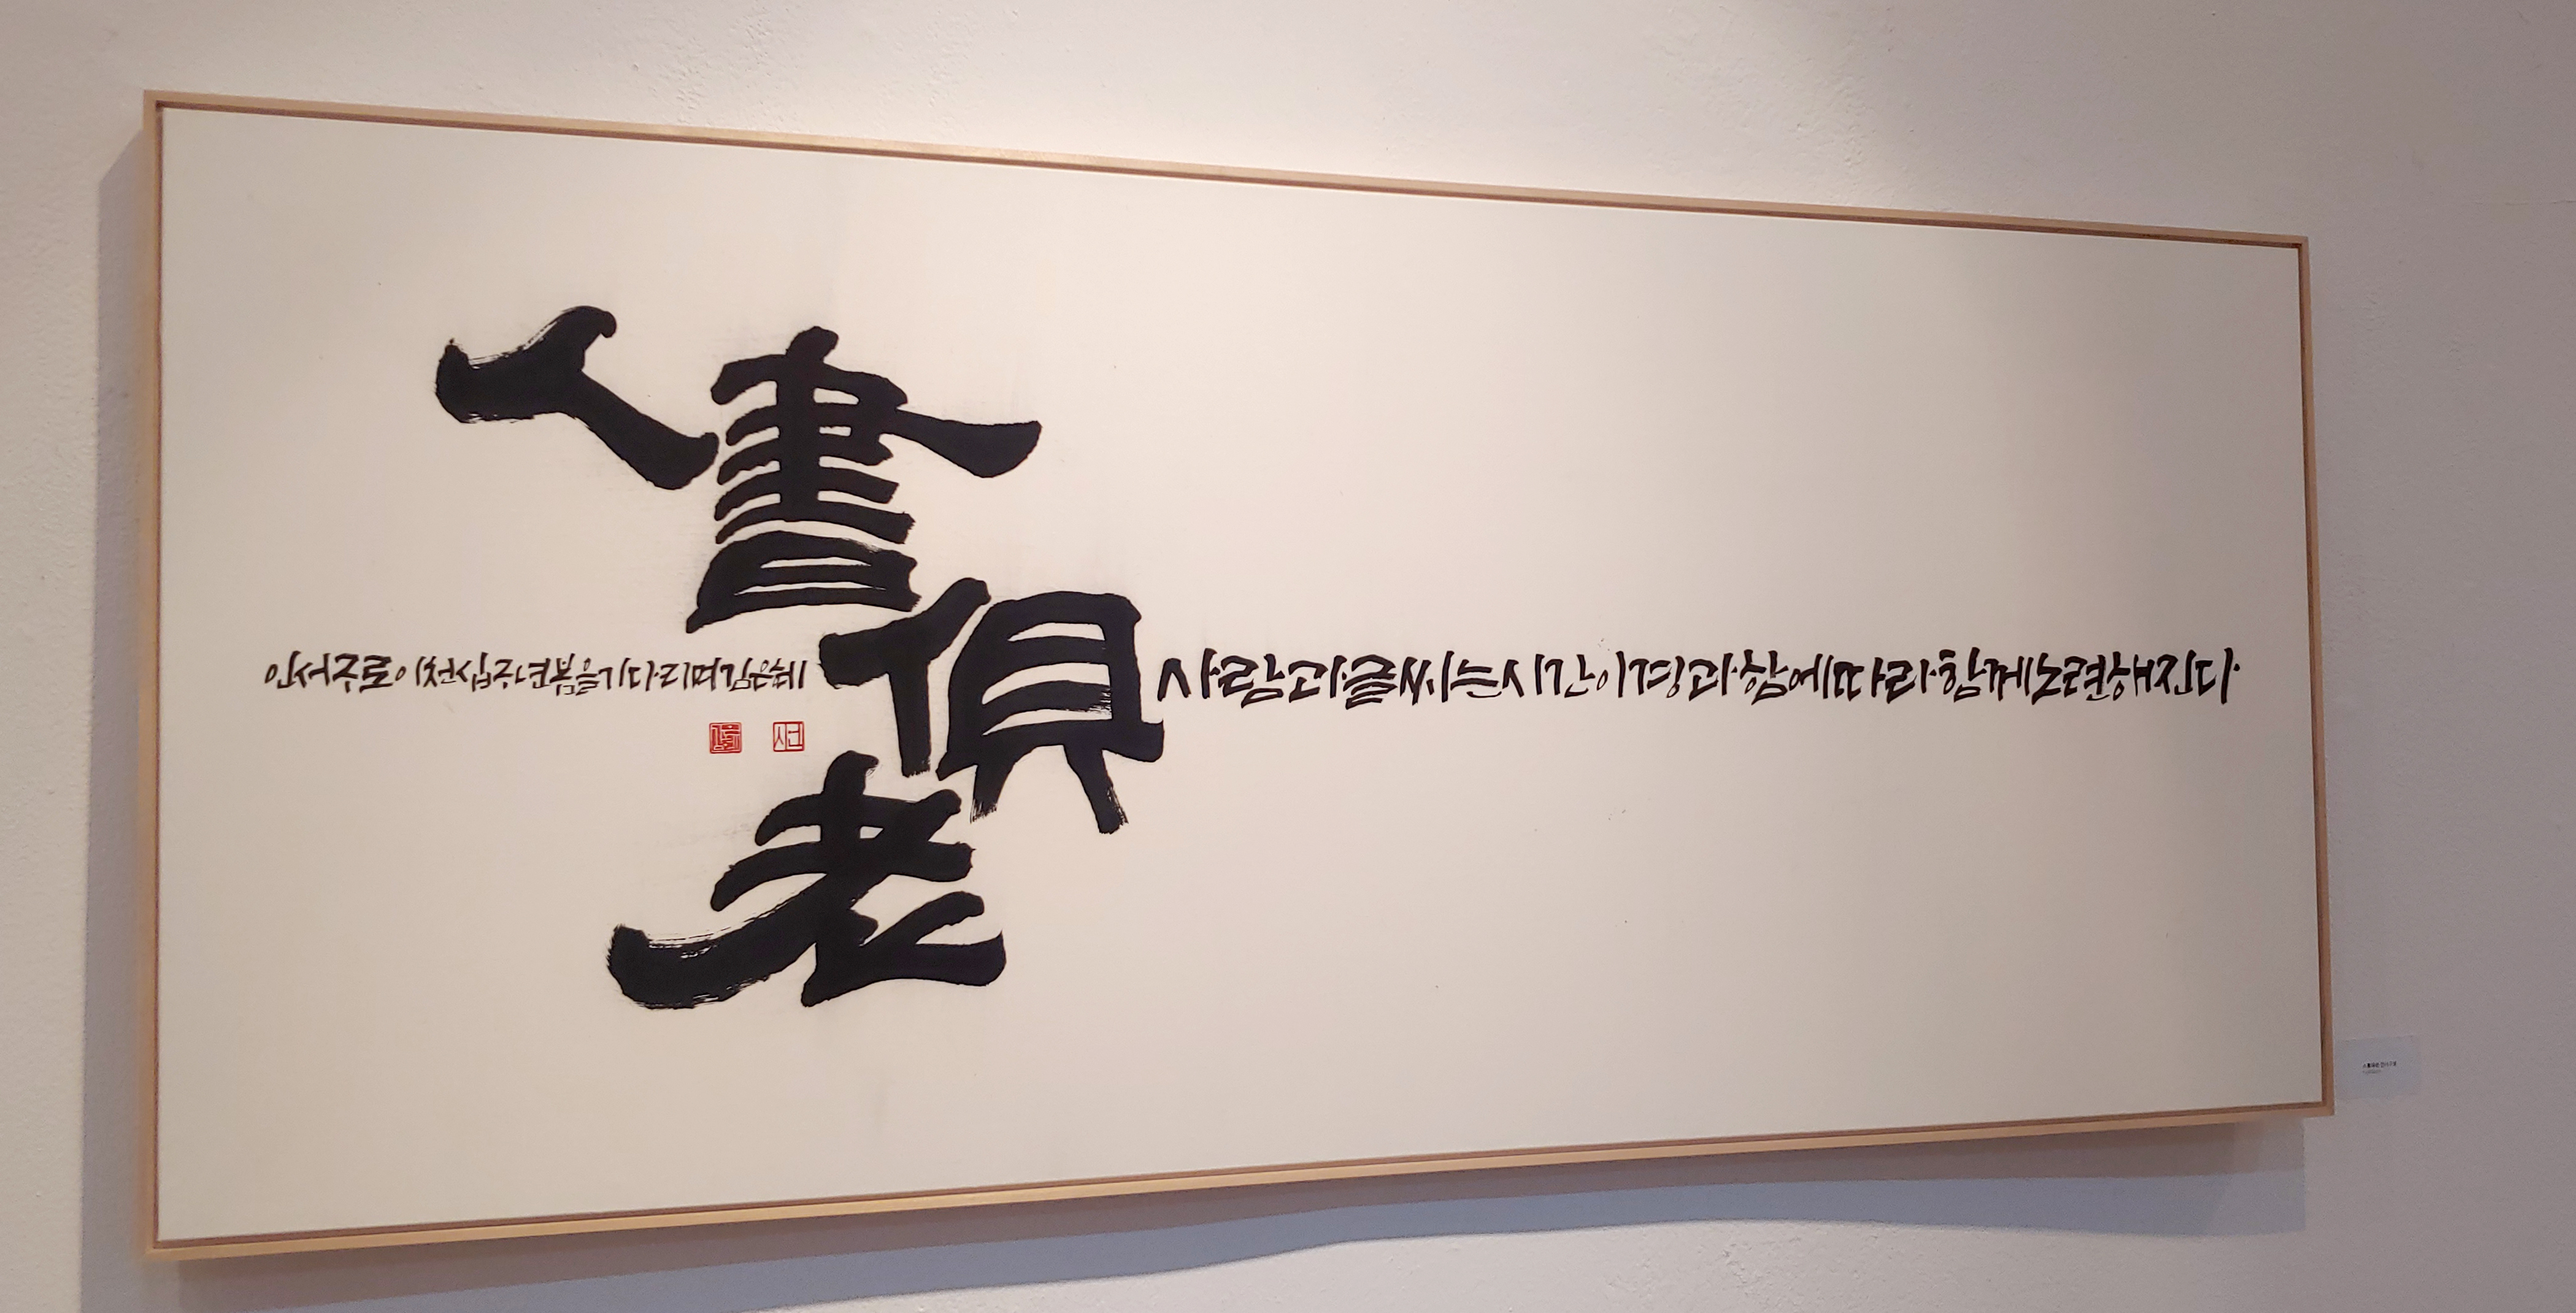 人書俱老
사람과글씨는시간이경과함에따라함께노련해진다
인서구로이천십구년봄을기다리며김은혜